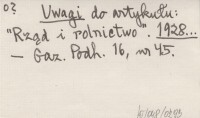 o?
Uwagi do artykułu:
"Rząd i rolnictwo". 1928...
— Gaz. Podh. 16, nr 45.